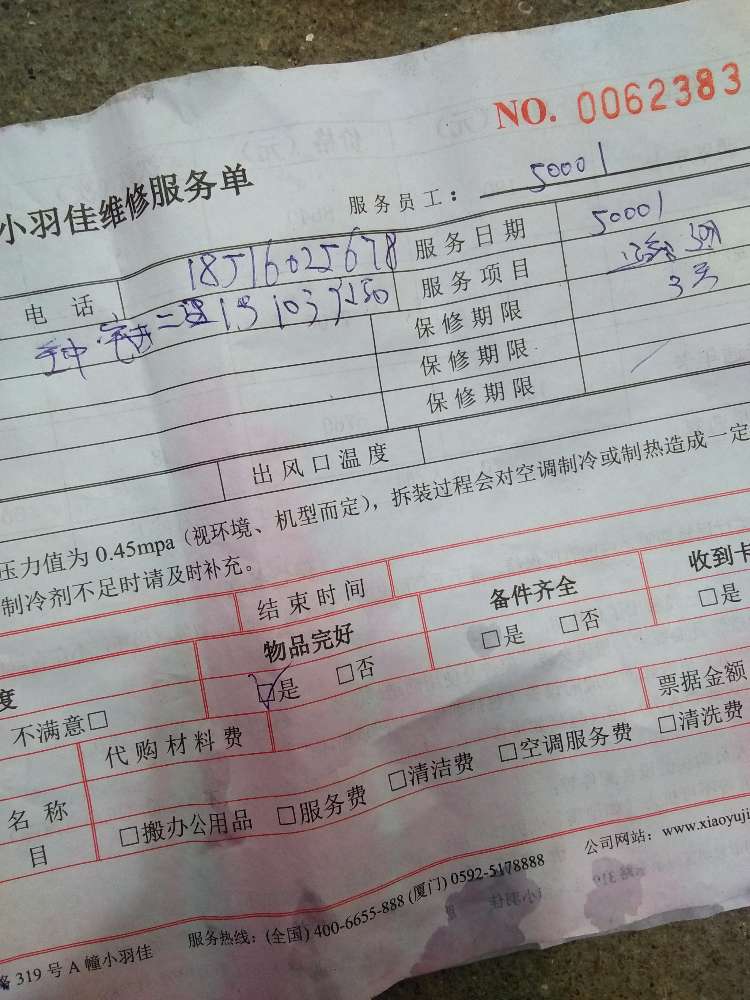 NO. 0062383
小羽佳维修服务单
服务员工: 50001
电话 18516025678 服务日期 50001
服务项目
保修期限 3天
保修期限
保修期限
出风口温度
压力值为 0.45mpa (视环境、机型而定), 拆装过程会对空调制冷或制热造成一定
制冷剂不足时请及时补充。
结束时间
物品完好 备件齐全 收到卡
□是 □否 □是 □否 □是
度
不满意□
代购材料费 票据金额
名称
□搬办公用品 □服务费 □清洁费 □空调服务费 □清洗费
目
服务热线: (全国) 400-6655-888 (厦门) 0592-5178888 公司网站: www.xiaoyuji
路 319 号 A 幢小羽佳